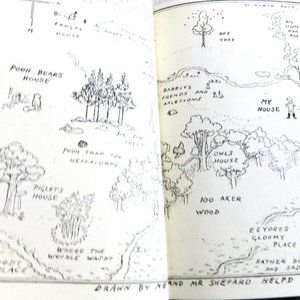 KANGAS
HOUSE
POOH BEARS
HOUSE
SIX PINE
TREES
POOH TRAP FOR
HEFFALUMPS
PIGLETS
HOUSE
WHERE THE
WOOZLE WASNT
PLACE
BEE
TREE
RABBITS
FRENDS AND
RALETIONS
MY
HOUSE
OWLS
HOUSE
100 AKER
WOOD
EEYORES
GLOOMY
PLACE
RATHER BOGGY
AND SAD
DRAWN BY ME AND MR SHEPARD HELPD